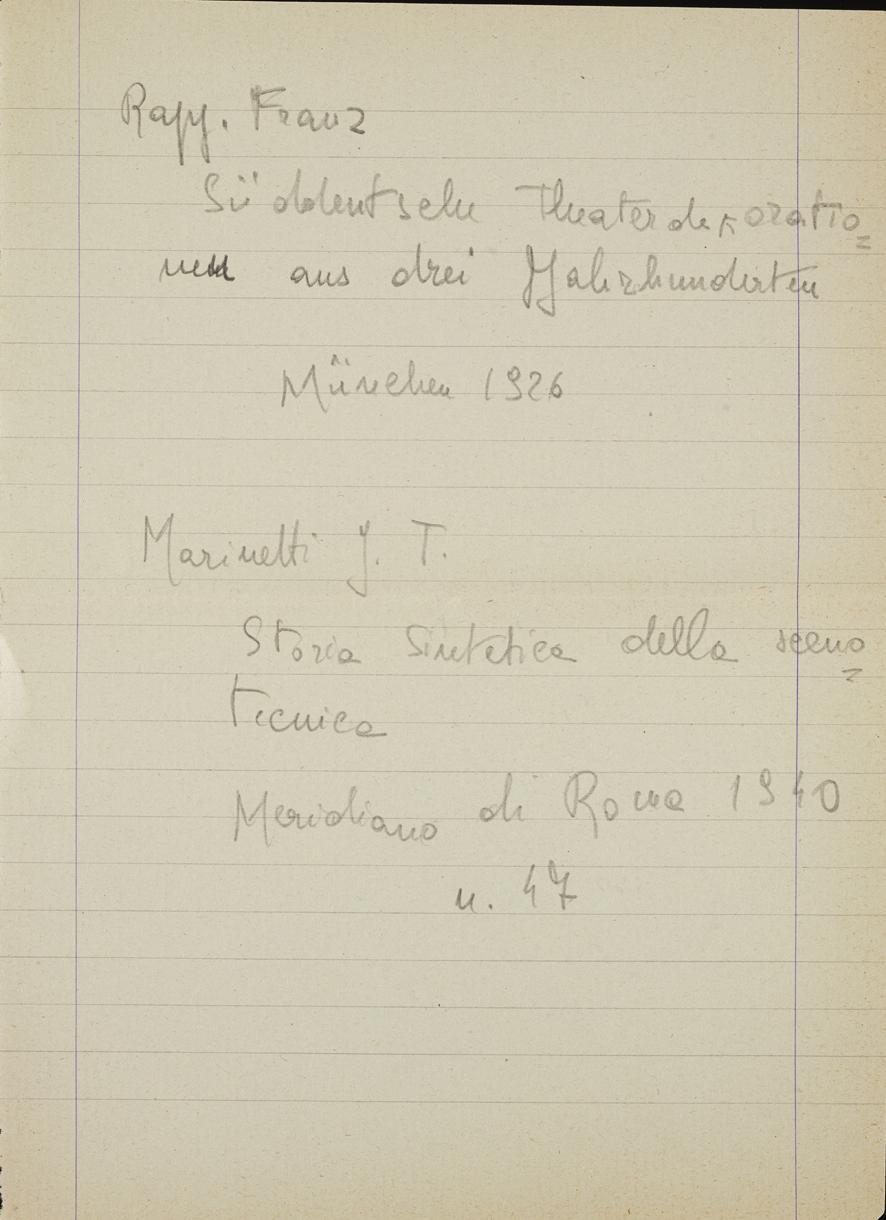 Rapp. Franz
Süddeutsche Theaterdekoratio=
nen aus drei Jahrhunderten
München 1926
Marinetti J. T.
Storia Sintetica della sceno=
tecnica
Meridiano di Roma 1940
n. 47